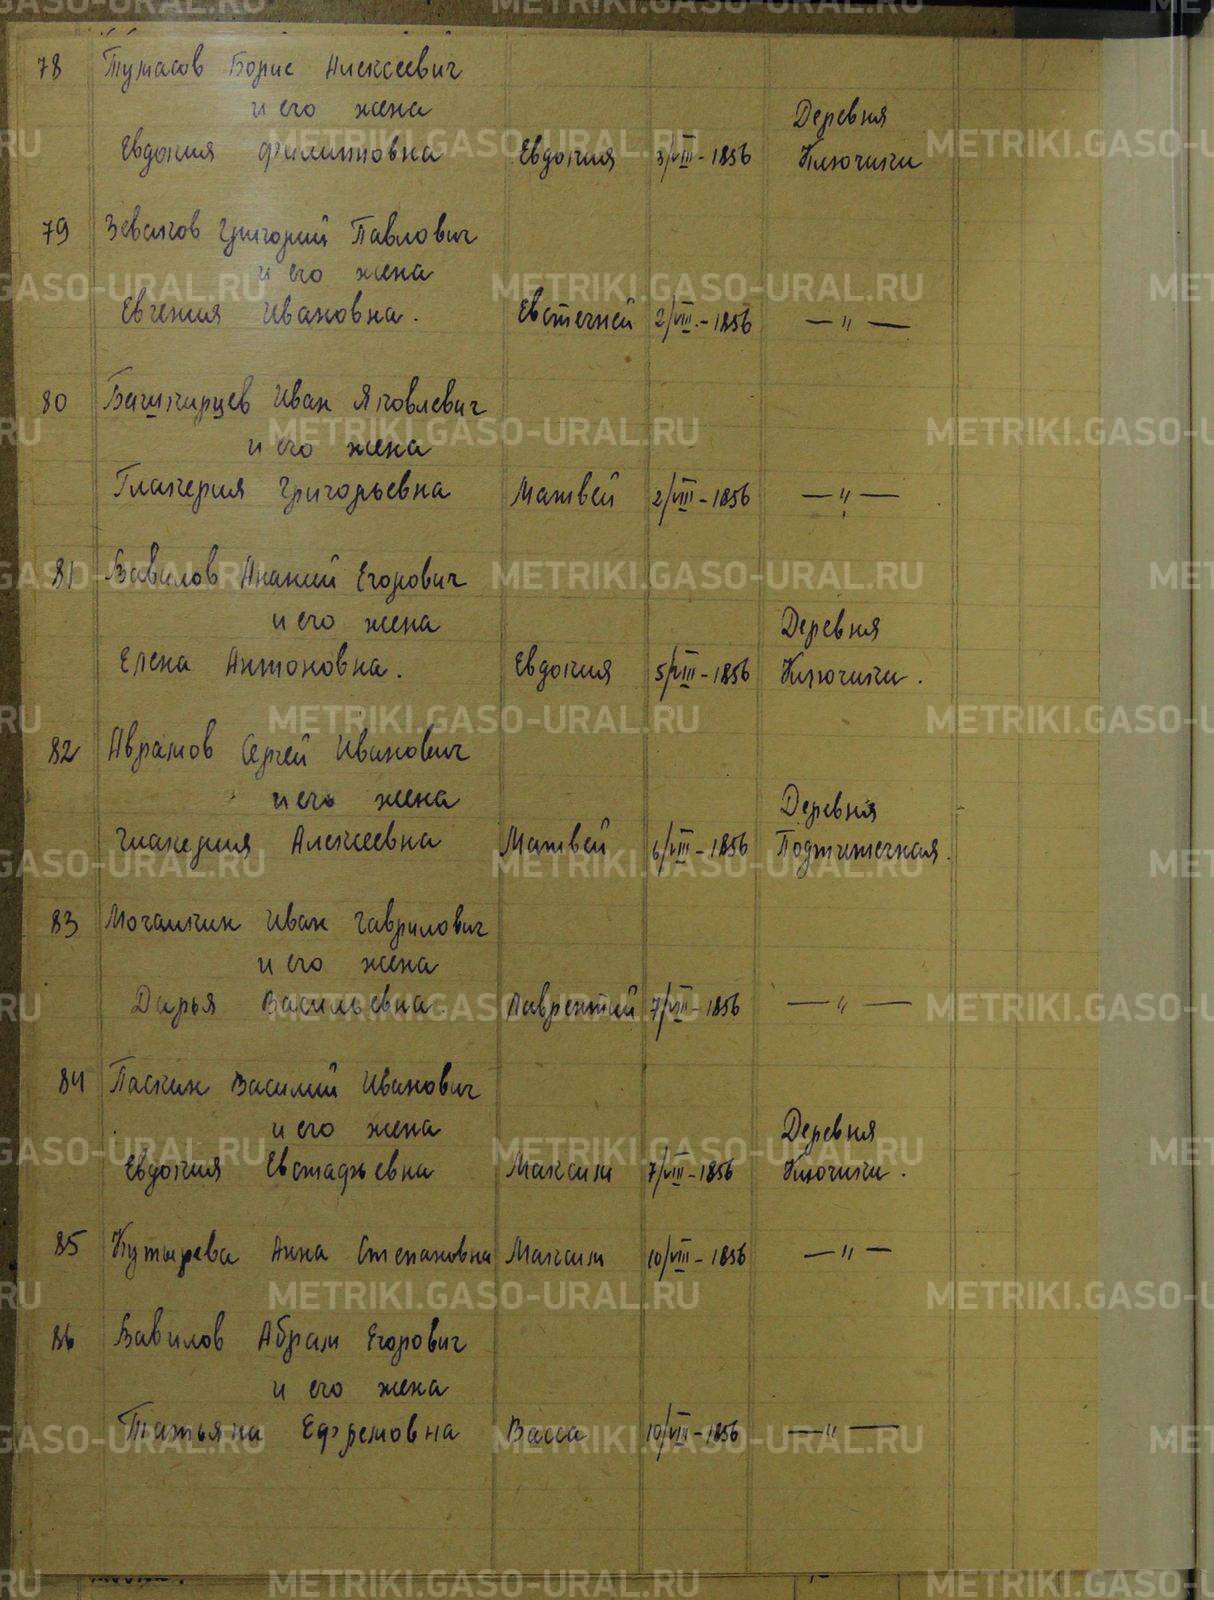 78 Тумасов Борис Алексеевич
и его жена
Деревня
Евдокия Филипповна Евдокия 3/VIII-1856 Ключики
79 Зевахов Григорий Павлович
и его жена
Евгения Ивановна. Евстегней 2/VIII.-1856 — " —
80 Башкирцев Иван Яковлевич
и его жена
Гликерия Григорьевна Матвей 2/VIII-1856 — " —
81 Вавилов Ананий Егорович
и его жена Деревня
Елена Антоновна. Евдокия 5/VIII-1856 Ключики.
82 Аврамов Сергей Иванович
и его жена Деревня
Гликерия Алексеевна Матвей 6/VIII-1856
83 Мочалкин Иван Гаврилович
и его жена
Дарья Васильевна. Лаврентий 7/VIII-1856 — " —
84 Паскин Василий Иванович
и его жена Деревня
Евдокия Евстафьевна Максим 7/VIII-1856 Ключики.
85 Кутырева Анна Степановна Максим 10/VIII-1856 — " —
86 Вавилов Абрам Егорович
и его жена
Татьяна Ефремовна Васса 10/VIII-1856 — " —
METRIKI.GASO-URAL.RU